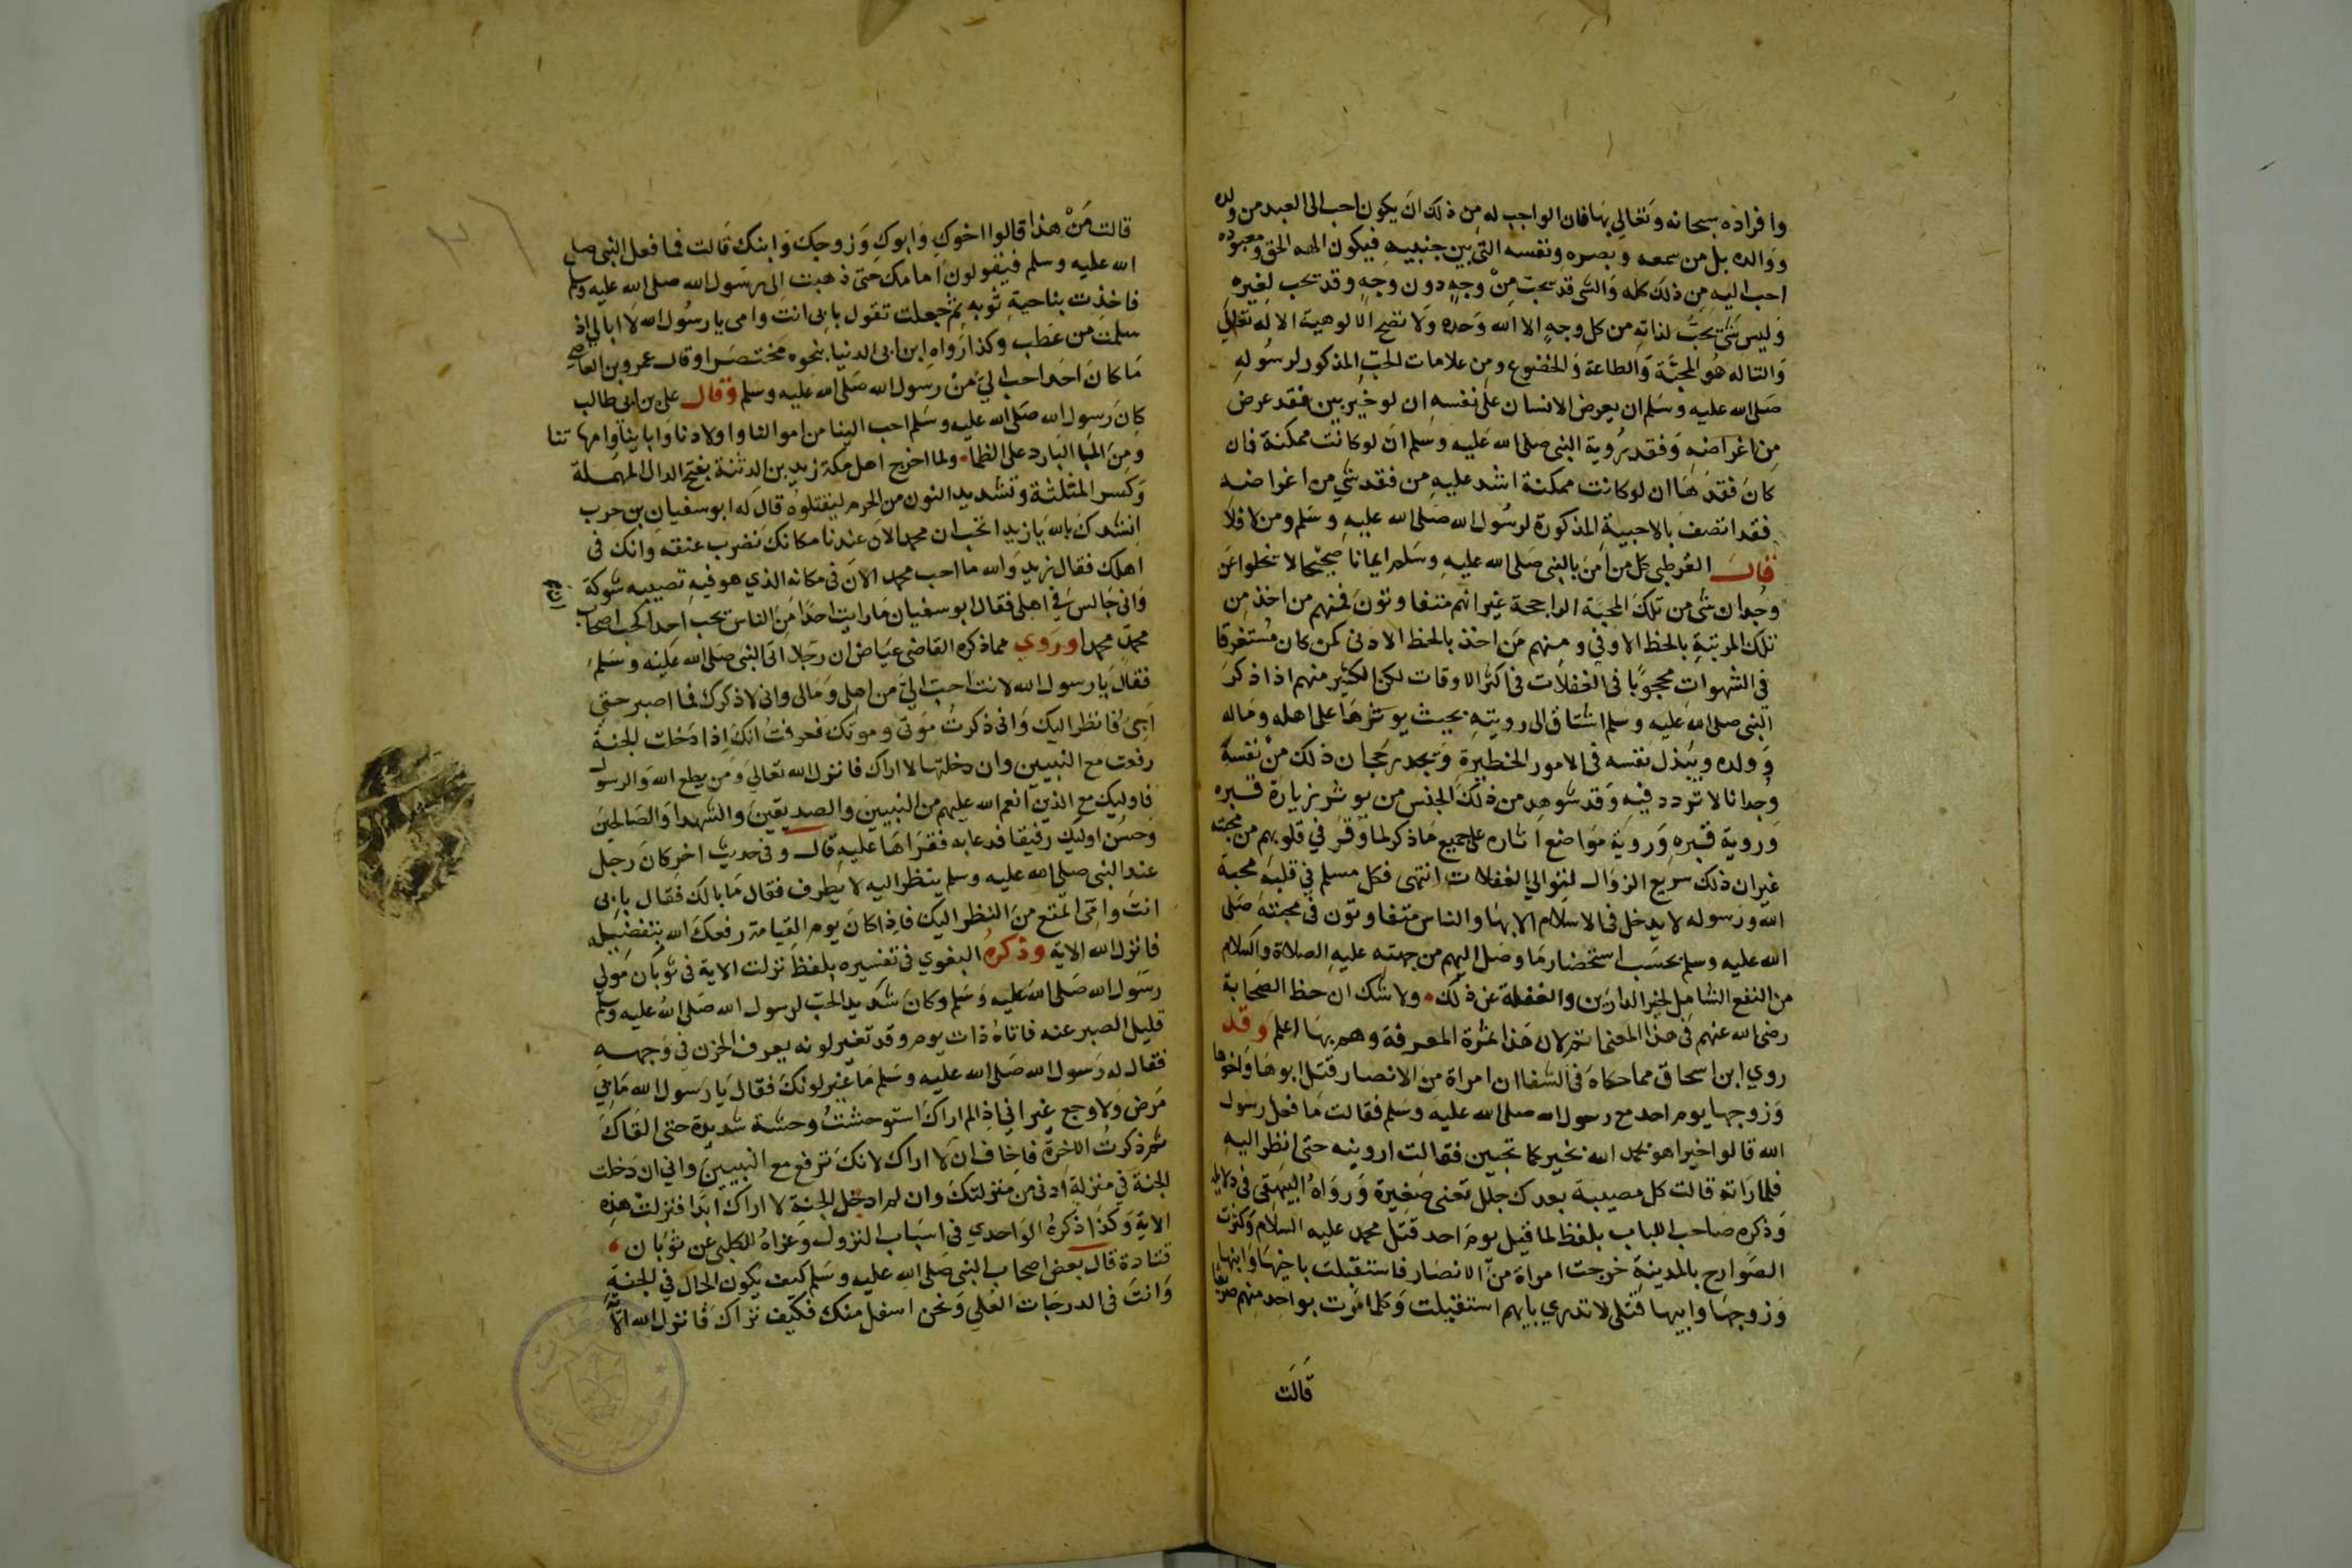 وافراده سبحانه وتعالي بها فان الواجب له من ذلك ان يكون احب الى العبد من ولده
ووالده بل من سمعه وبصره ونفسه التي بين جنبيه فيكون الهه الحق ومعبوده
احب اليه من ذلك كله والشى قد يحب من وجه دون وجه وقد يحب لغيره
وليس شئ يحب لذاته من كل وجه الا الله وحده ولا تصح الالوهية الا له تعالي
والتاله هو المحبة والطاعة والخضوع ومن علامات الحب المذكور لرسوله
صلى الله عليه وسلم ان يعرض الانسان على نفسه ان لو خير بين فقد عرض
من اغراضه وفقد روية النبى صلى الله عليه وسلم ان لو كانت ممكنة فان
كان فقدها ان لو كانت ممكنة اشد عليه من فقد شي من اغراضه
فقد اتصف بالاحبية المذكورة لرسول الله صلى الله عليه وسلم ومن لا فلا
قال القرطبي كل من امن بالنبى صلى الله عليه وسلم ايمانا صحيحا لا تخلوا عن
وجدان شى من تلك المحبة الراجحة غير انهم متفاوتون فمنهم من اخذ من
تلك المرتبة بالحظ الاوفى ومنهم من اخذ بالحظ الادنى كمن كان مستغرقا
في الشهوات محجوبا في الغفلات في اكثر الاوقات لكن الكثير منهم اذا ذكر
النبى صلى الله عليه وسلم اشتاق الى رويته بحيث يوثرها على اهله وماله
وولده ويبذل نفسه فى الامور الخطيرة ويجد رجحان ذلك من نفسه
وجدانا لا تردد فيه وقد شوهد من ذلك الجنس من يوثر زيارة قبره
وروية قبره وروية مواضع اثاره على جميع ما ذكر لما وقر في قلوبهم من محبته
غير ان ذلك سريع الزوال لتوالي الغفلات انتهى فكل مسلم في قلبه محبة
الله ورسوله لا يدخل في الاسلام الا بها والناس متفاوتون في محبته صلى
الله عليه وسلم بحسب استحضار ما وصل اليهم من جهته عليه الصلاة والسلام
من النفع الشامل لخير الدارين والغفلة عن ذلك ولا شك ان حظ الصحابة
رضى الله عنهم في هذا المعنى اتم لان هذا ثمرة المعرفة وهم بها اعلم وقد
روي ابن اسحاق مما حكاه في الشفا ان امراة من الانصار قتل ابوها واخوها
وزوجها يوم احد مع رسول الله صلى الله عليه وسلم فقالت ما فعل رسول
الله قالوا خيرا هو بحمد الله بخير كما تحبين فقالت ارونيه حتى انظر اليه
فلما راته قالت كل مصيبة بعدك جلل تعنى صغيرة ورواه البيهقى في دلايله
وذكره صاحب اللباب بلفظ لما قيل يوم احد قتل محمد عليه السلام وكثرت
الصوارح بالمدينة خرجت امراة من الانصار فاستقبلت باخيها وابنها
وزوجها وابيها قتلى لا تدري بايهم استقبلت وكلما مرت بواحد منهم صريعا
قالت
قالت من هذا قالوا اخوك وابوك وزوجك وابنك قالت فما فعل النبى صلى
الله عليه وسلم فيقولون امامك حتى ذهبت الى رسول الله صلى الله عليه وسلم
فاخذت بناحية ثوبه ثم جعلت تقول بابى انت وامى يا رسول الله لا ابالي اذ
سلمت من عطب وكذا رواه ابن ابى الدنيا بنحوه مختصرا وقال عمرو بن العاصى
ما كان احد احب الي من رسول الله صلى الله عليه وسلم وقال على بن ابى طالب
كان رسول الله صلى الله عليه وسلم احب الينا من اموالنا واولادنا واباينا وامهاتنا
ومن الما البارد على الظما ولما اخرج اهل مكة زيد بن الدثنة بفتح الدال المهملة
وكسر المثلثة وتشديد النون من الحرم ليقتلوه قال له ابو سفيان بن حرب
انشدك بالله يا زيد اتحب ان محمد الان عندنا مكانك نضرب عنقه وانك في
اهلك فقال زيد والله ما احب محمد الان في مكانه الذي هو فيه تصيبه شوكة
واني جالس في اهلى فقال ابو سفيان ما رايت احدا من الناس يحب احدا كحب اصحاب
محمد محمدا وروي مما ذكره القاضى عياض ان رجلا اتى النبى صلى الله عليه وسلم
فقال يا رسول الله لانت احب الي من اهلى ومالى وانى لاذكرك فما اصبر حتى
اجى فانظر اليك وانى ذكرت موتى وموتك فعرفت انك اذا دخلت الجنة
رفعت مع النبيين وان دخلتها لا اراك فانزل الله تعالي ومن يطع الله والرسول
فاوليك مع الذين انعم الله عليهم من النبيين والصديقين والشهدا والصالحين
وحسن اوليك رفيقا فدعا به فقراها عليه قال وفي حديث اخر كان رجل
عند النبى صلى الله عليه وسلم ينظر اليه لا يطرف فقال ما بالك فقال بابى
انت وامى اتمتع من النظر اليك فاذا كان يوم القيامة رفعك الله بتفضيله
فانزل الله الاية وذكره البغوي في تفسيره بلفظ نزلت الاية في ثوبان مولي
رسول الله صلى الله عليه وسلم وكان شديد الحب لرسول الله صلى الله عليه وسلم
قليل الصبر عنه فاتاه ذات يوم وقد تغير لونه يعرف الحزن في وجهه
فقال له رسول الله صلى الله عليه وسلم ما غير لونك فقال يا رسول الله ما بي
مرض ولا وجع غير اني اذا لم اراك استوحشت وحشة شديدة حتى القاك
ثم ذكرت الاخرة فاخاف ان لا اراك لانك ترفع مع النبيين واني ان دخلت
الجنة في منزلة ادنى من منزلتك وان لم ادخل الجنة لا اراك ابدا فنزلت هذه
الاية وكذا ذكره الواحدي في اسباب النزول وعزاه للكلبى عن ثوبان
قتادة قال بعض اصحاب النبى صلى الله عليه وسلم كيف يكون الحال في الجنة
وانت في الدرجات العلي ونحن اسفل منك فكيف نراك فانزل الله الاية